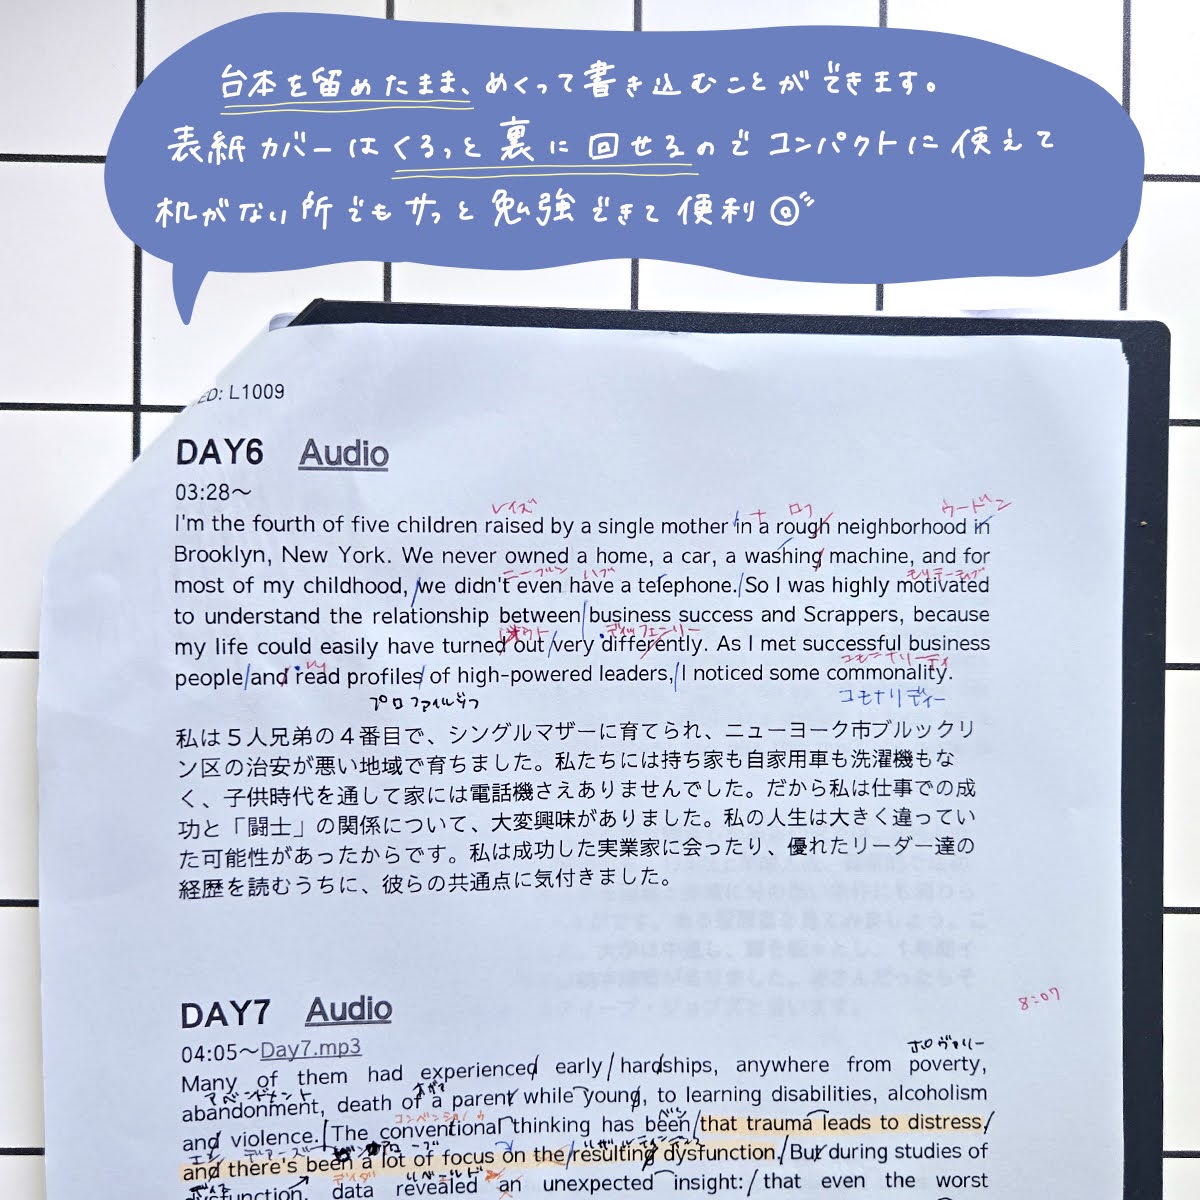 台本を留めたまま、めくって書き込むことができます。
表紙カバーはくるっと裏に回せるのでコンパクトに使えて
机がない所でもサッと勉強できて便利◎
ED: L1009
DAY6 Audio
03:28〜
レイズ ロフ ウードゥン
I'm the fourth of five children raised by a single mother in a rough neighborhood in
Brooklyn, New York. We never owned a home, a car, a washing machine, and for
ニーブン ハブ モリテーティブ
most of my childhood, we didn't even have a telephone. So I was highly motivated
to understand the relationship between business success and Scrappers, because
ディッフェンリー
my life could easily have turned out very differently. As I met successful business
コモナリーティ
people and read profiles of high-powered leaders, I noticed some commonality.
プロファイルゾフ コモナリディー
私は５人兄弟の４番目で、シングルマザーに育てられ、ニューヨーク市ブルックリ
ン区の治安が悪い地域で育ちました。私たちには持ち家も自家用車も洗濯機もな
く、子供時代を通して家には電話機さえありませんでした。だから私は仕事での成
功と「闘士」の関係について、大変興味がありました。私の人生は大きく違ってい
た可能性があったからです。私は成功した実業家に会ったり、優れたリーダー達の
経歴を読むうちに、彼らの共通点に気付きました。
8:07
DAY7 Audio
04:05〜Day7.mp3
ポヴァリー
Many of them had experienced early hardships, anywhere from poverty,
アベンドメント
abandonment, death of a parent while young, to learning disabilities, alcoholism
コンベンショノウ ベン
and violence. The conventional thinking has been that trauma leads to distress,
and there's been a lot of focus on the resulting dysfunction. But during studies of
リベールド
dysfunction, data revealed an unexpected insight: that even the worst